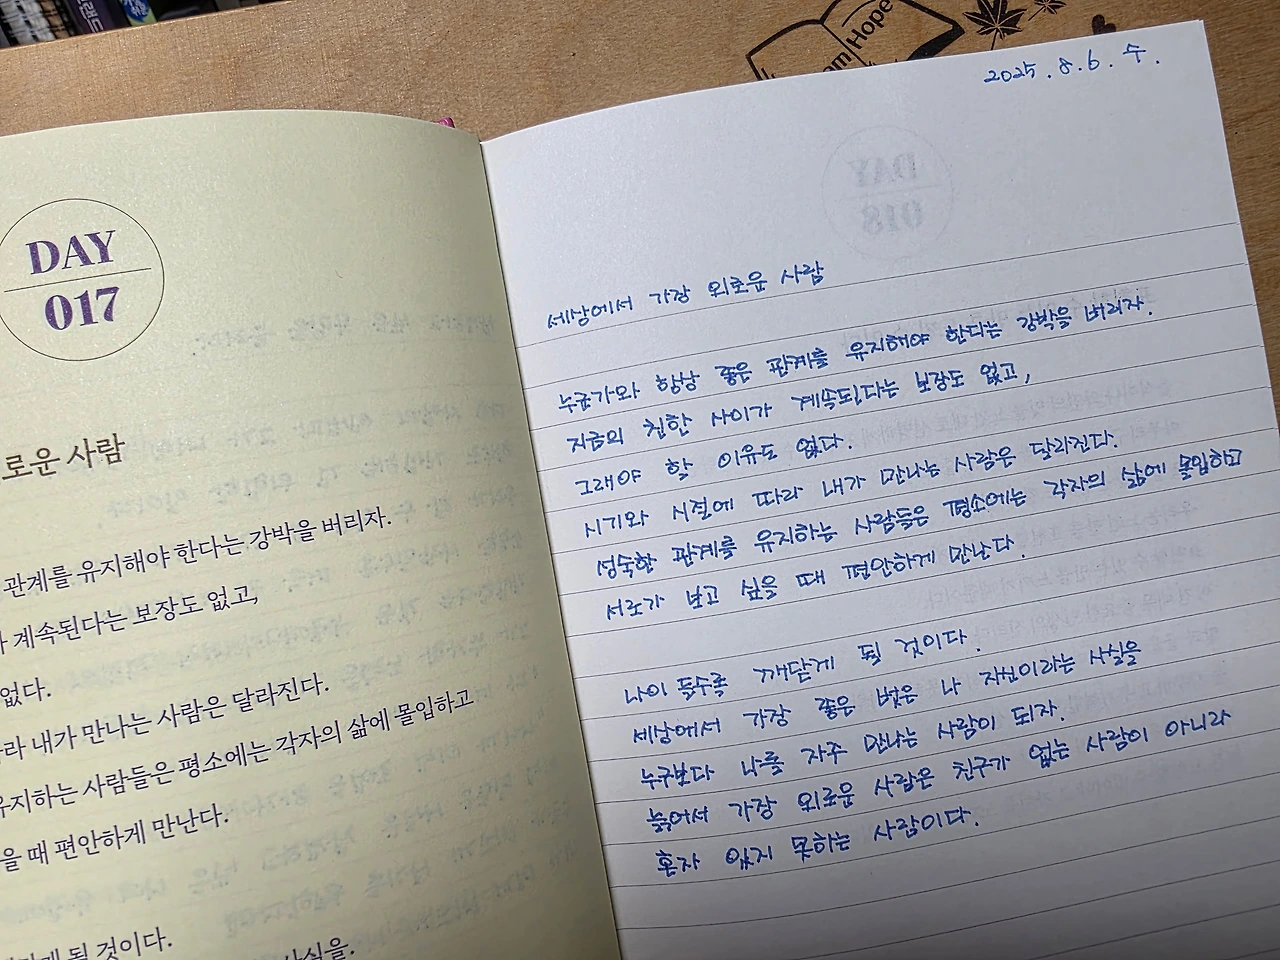 DAY
017
로운 사람
관계를 유지해야 한다는 강박을 버리자.
계속된다는 보장도 없고,
없다.
라 내가 만나는 사람은 달라진다.
유지하는 사람들은 평소에는 각자의 삶에 몰입하고
을 때 편안하게 만난다.
게 될 것이다.
사실을.
Hope
2025. 8. 6. 수.
DAY
018
세상에서 가장 외로운 사람
누군가와 항상 좋은 관계를 유지해야 한다는 강박을 버리자.
지금의 친한 사이가 계속된다는 보장도 없고,
그래야 할 이유도 없다.
시기와 시절에 따라 내가 만나는 사람은 달라진다.
성숙한 관계를 유지하는 사람들은 평소에는 각자의 삶에 몰입하고
서로가 보고 싶을 때 편안하게 만난다.
나이 들수록 깨닫게 될 것이다.
세상에서 가장 좋은 벗은 나 자신이라는 사실을
누구보다 나를 자주 만나는 사람이 되자.
늙어서 가장 외로운 사람은 친구가 없는 사람이 아니라
혼자 있지 못하는 사람이다.